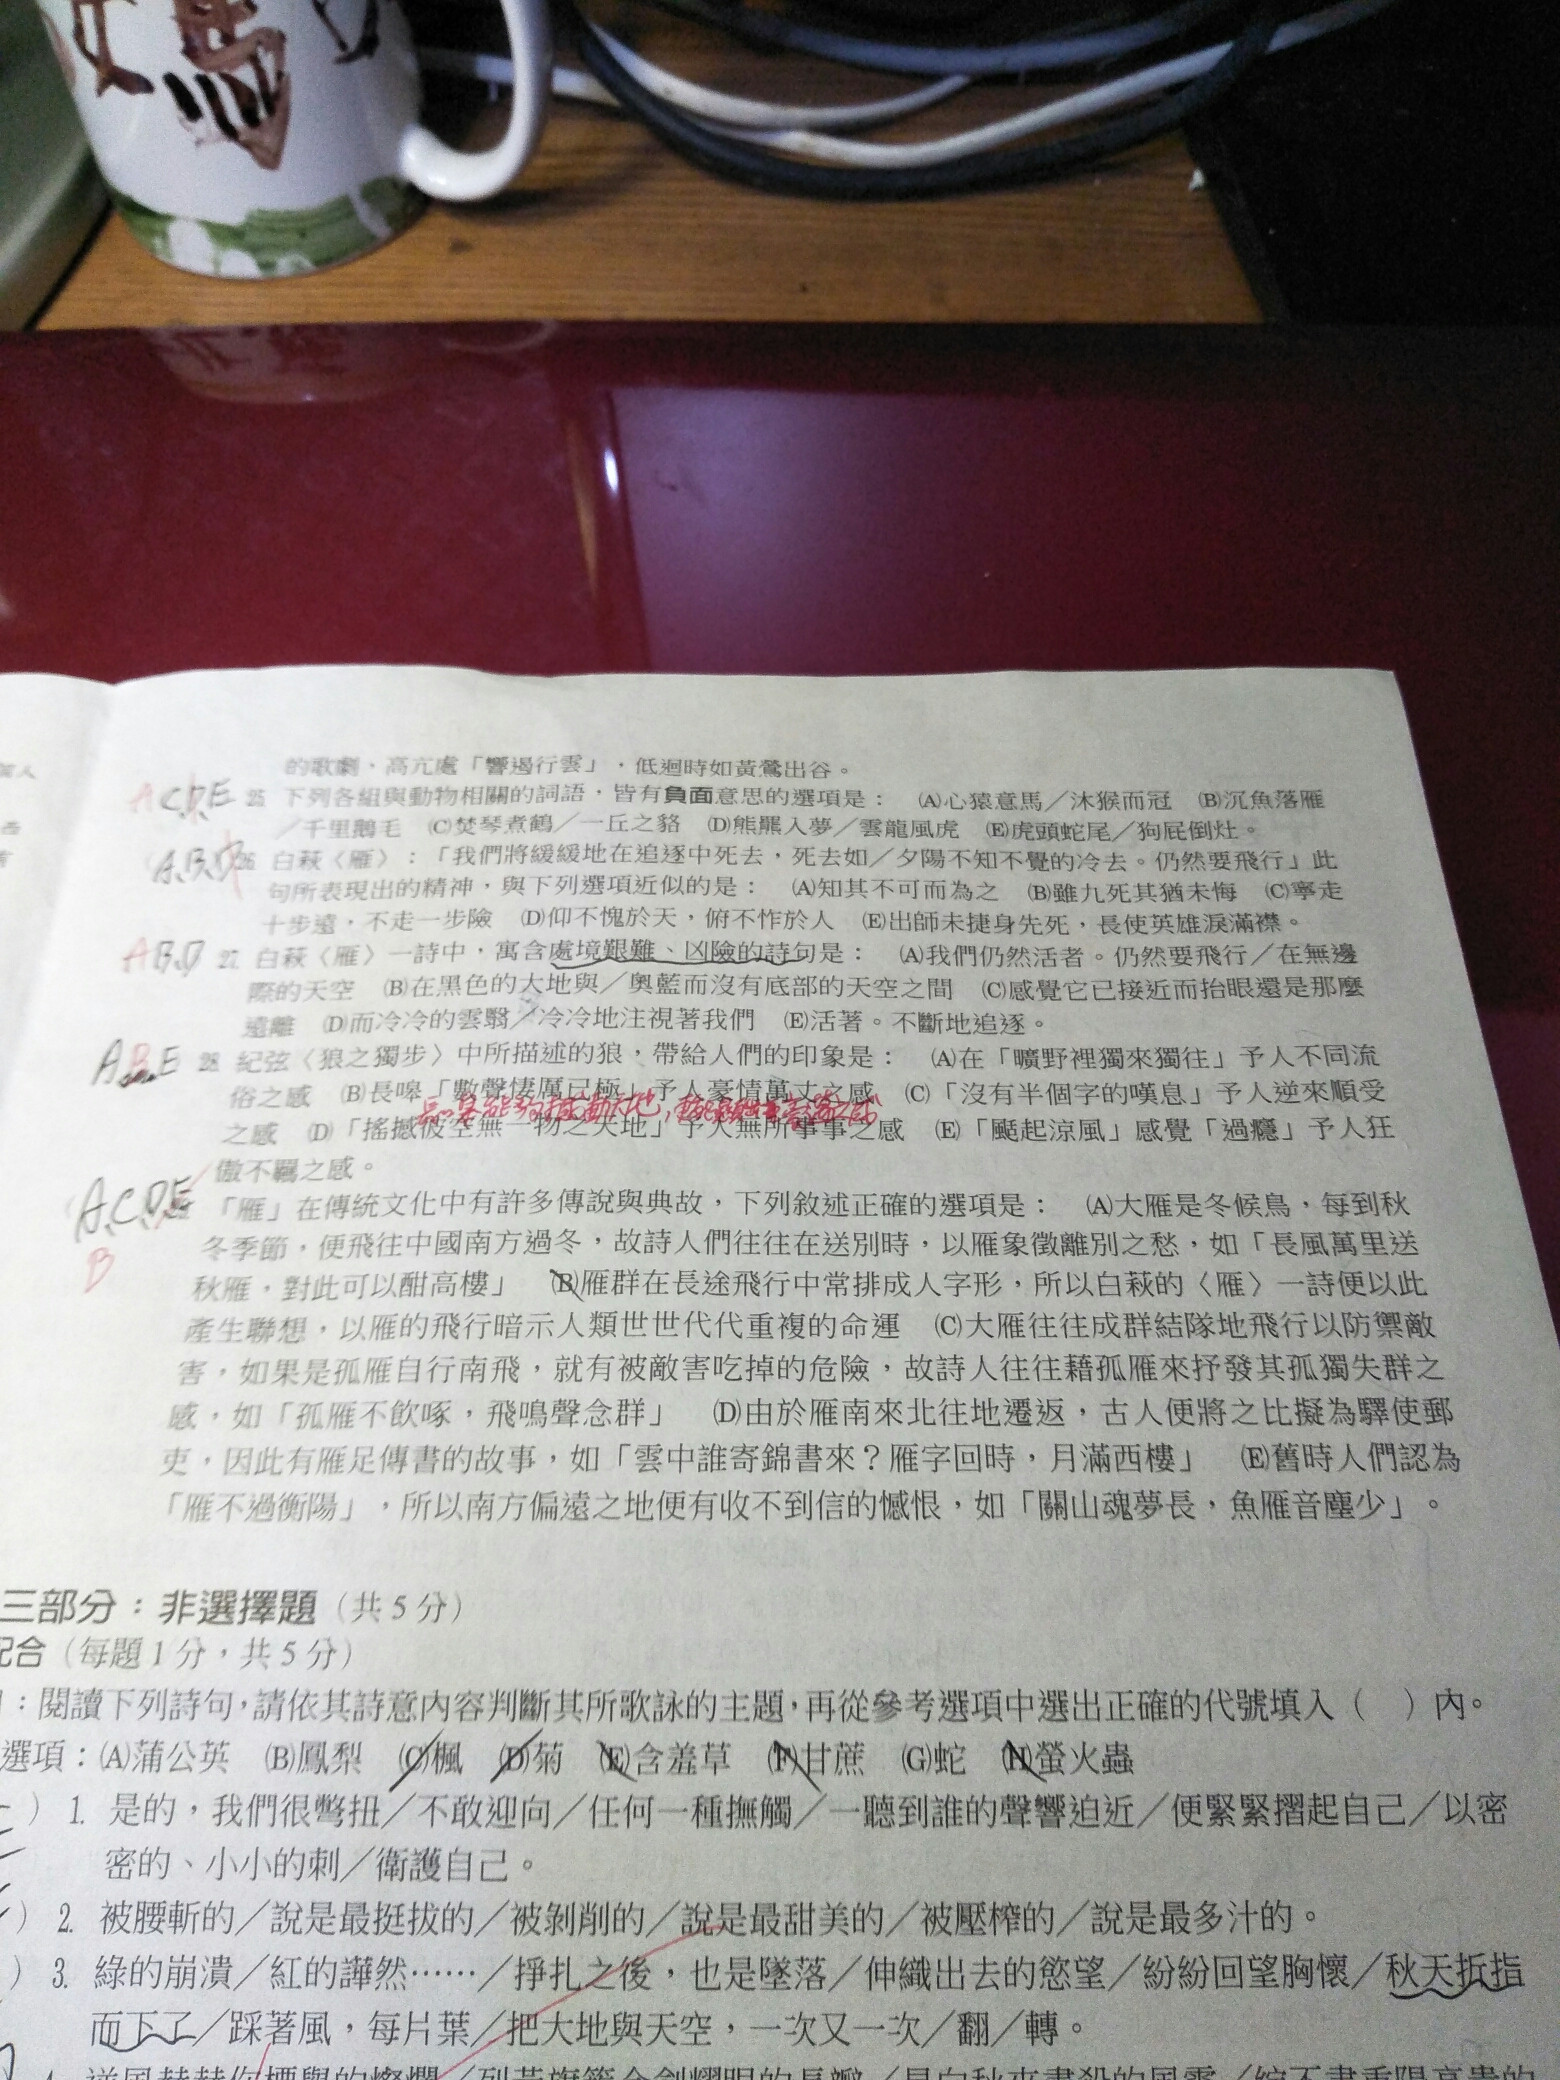 的歌劇，高亢處「響遏行雲」，低迴時如黃鶯出谷。
ACDE 25. 下列各組與動物相關的詞語，皆有負面意思的選項是： (A)心猿意馬／沐猴而冠 (B)沉魚落雁
／千里鵝毛 (C)焚琴煮鶴／一丘之貉 (D)熊羆入夢／雲龍風虎 (E)虎頭蛇尾／狗屁倒灶。
A.B.D 26. 白萩〈雁〉：「我們將緩緩地在追逐中死去，死去如／夕陽不知不覺的冷去。仍然要飛行」此
句所表現出的精神，與下列選項近似的是： (A)知其不可而為之 (B)雖九死其猶未悔 (C)寧走
十步遠，不走一步險 (D)仰不愧於天，俯不怍於人 (E)出師未捷身先死，長使英雄淚滿襟。
AB.D 27. 白萩〈雁〉一詩中，寓含處境艱難、凶險的詩句是： (A)我們仍然活者。仍然要飛行／在無邊
際的天空 (B)在黑色的大地與／奧藍而沒有底部的天空之間 (C)感覺它已接近而抬眼還是那麼
遠離 (D)而冷冷的雲翳／冷冷地注視著我們 (E)活著。不斷地追逐。
ABE 28. 紀弦〈狼之獨步〉中所描述的狼，帶給人們的印象是： (A)在「曠野裡獨來獨往」予人不同流
俗之感 (B)長嗥「數聲悽厲已極」予人豪情萬丈之感 (C)「沒有半個字的嘆息」予人逆來順受
之感 (D)「搖撼彼空無一物之天地」予人無所事事之感 (E)「颳起涼風」感覺「過癮」予人狂
傲不羈之感。
A.C.D.E 「雁」在傳統文化中有許多傳說與典故，下列敘述正確的選項是： (A)大雁是冬候鳥，每到秋
冬季節，便飛往中國南方過冬，故詩人們往往在送別時，以雁象徵離別之愁，如「長風萬里送
B
秋雁，對此可以酣高樓」 (B)雁群在長途飛行中常排成人字形，所以白萩的〈雁〉一詩便以此
產生聯想，以雁的飛行暗示人類世世代代重複的命運 (C)大雁往往成群結隊地飛行以防禦敵
害，如果是孤雁自行南飛，就有被敵害吃掉的危險，故詩人往往藉孤雁來抒發其孤獨失群之
感，如「孤雁不飲啄，飛鳴聲念群」 (D)由於雁南來北往地遷返，古人便將之比擬為驛使郵
吏，因此有雁足傳書的故事，如「雲中誰寄錦書來？雁字回時，月滿西樓」 (E)舊時人們認為
「雁不過衡陽」，所以南方偏遠之地便有收不到信的憾恨，如「關山魂夢長，魚雁音塵少」。
三部分：非選擇題（共5分）
配合（每題1分，共5分）
：閱讀下列詩句，請依其詩意內容判斷其所歌詠的主題，再從參考選項中選出正確的代號填入（ ）內。
選項：(A)蒲公英 (B)鳳梨 (C)楓 (D)菊 (E)含羞草 (F)甘蔗 (G)蛇 (H)螢火蟲
）1. 是的，我們很彆扭／不敢迎向／任何一種撫觸／一聽到誰的聲響迫近／便緊緊摺起自己／以密
密的、小小的刺／衛護自己。
）2. 被腰斬的／說是最挺拔的／被剝削的／說是最甜美的／被壓榨的／說是最多汁的。
）3. 綠的崩潰／紅的譁然……／掙扎之後，也是墜落／伸織出去的慾望／紛紛回望胸懷／秋天扺指
而下了／踩著風，每片葉／把大地與天空，一次又一次／翻／轉。